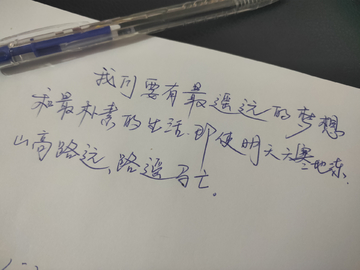 我们要有最遥远的梦想
和最朴素的生活.即使明天天寒地冻.
山高路远,路遥马亡.